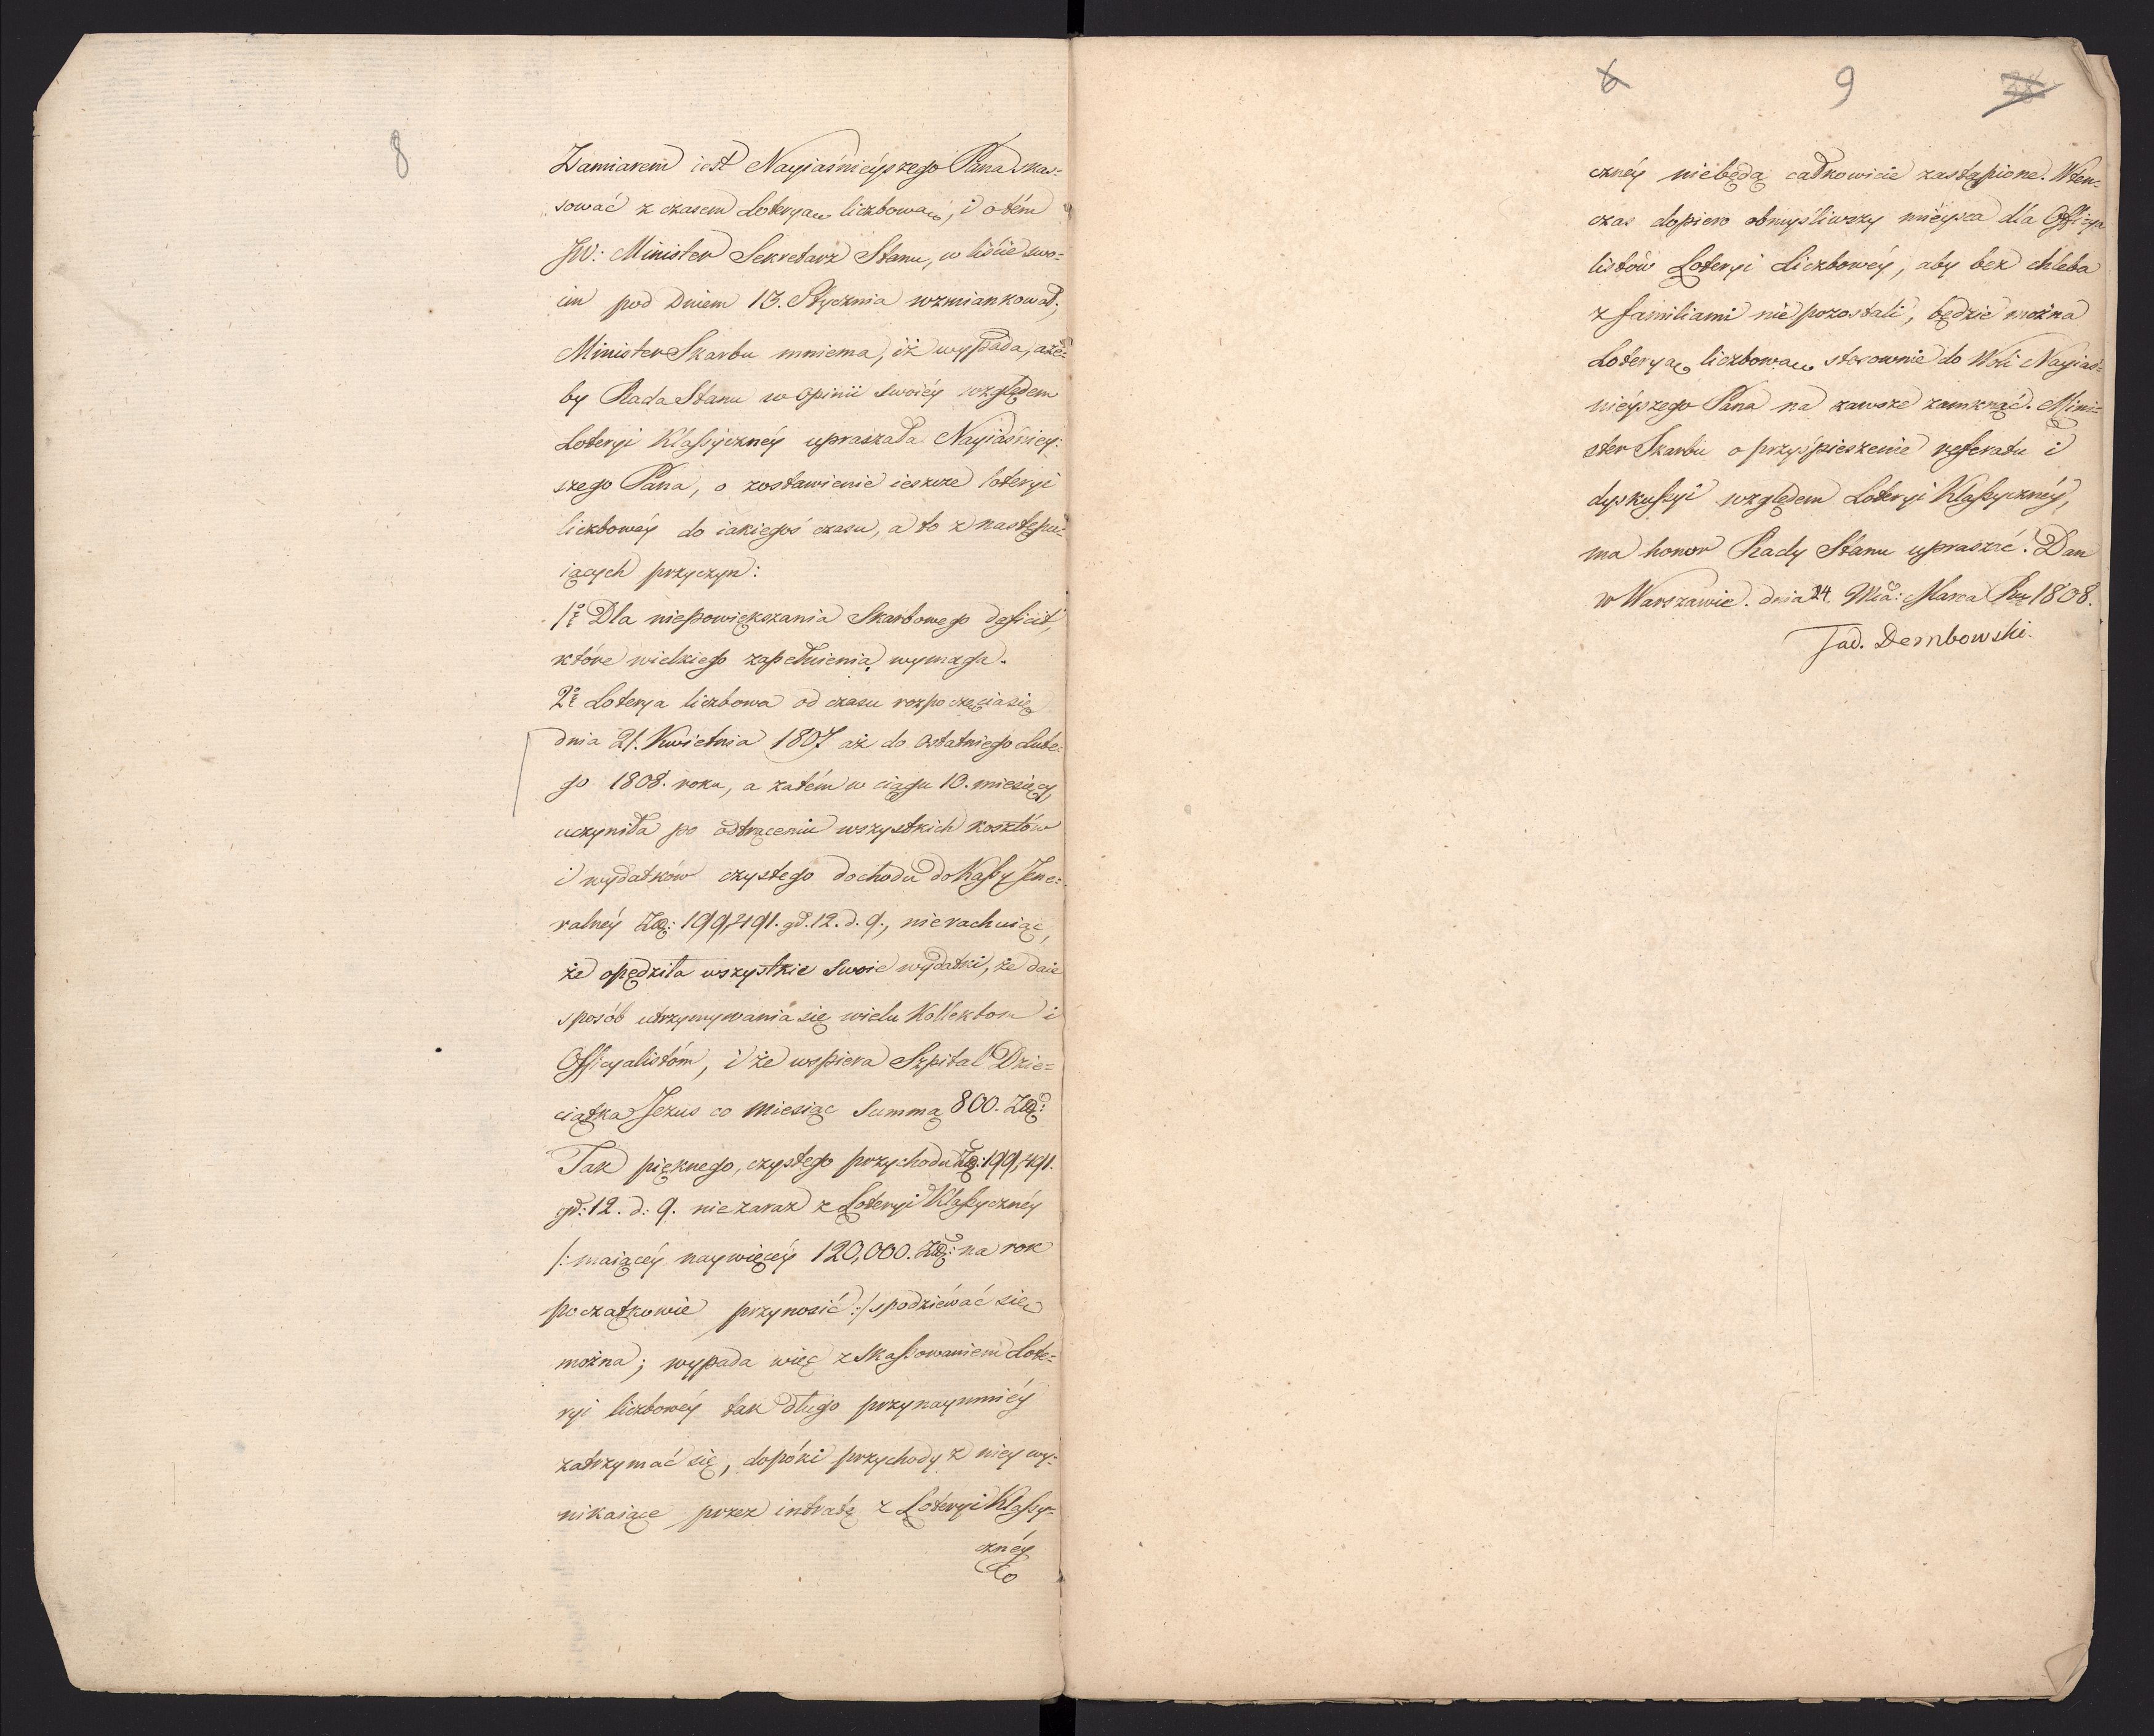 8
Zamiarem iest Nayiaśnieyszego Pana skas-
sować z czasem Loteryą liczbową, i o tém
JW: Minister Sekretarz Stanu, w liście swo-
im pod Dniem 13. Stycznia wzmiankował;
Minister Skarbu mniema, iż wypada, aże-
by Rada Stanu w opinii swoiéy względem
Loteryi Klassyczney upraszała Nayiaśniey-
szego Pana, o zostawienie ieszcze loteryi
liczbowéy do iakiegoś czasu, a to z następu-
iących przyczyn:
1º Dla niepowiększania Skarbowego deficit,
które wielkiego zapełnienia wymaga.
2º Loterya liczbowa od czasu rozpoczęcia się
dnia 21. Kwietnia 1807 aż do ostatniego Lute-
go 1808. roku, a zatém w ciągu 10. miesięcy
uczyniła po odtrąceniu wszystkich kosztów
i wydatków czystego dochodu do Kassy Jene-
ralnéy Złł: 199,491. gł. 12. d. 9., nie rachuiąc,
że opędziła wszystkie swoie wydatki, że daie
sposób utrzymywania się wielu Kollektom i
Officyalistóm, i że wspiera Szpital Dzie-
ciątka Jezus co Miesiąc Summą 800. Złł:
Tak pięknego, czystego przychodu Złł: 199,491.
gł: 12. d: 9. nie zaraz z Loteryi Klassycznéy
/: maiącéy naywięcéy 120,000. Złł: na rok
początkowie przynosić :/ spodziéwać się
można; wypada więc z skassowaniem Lote-
ryi liczbowéy tak długo przynaymniéy
zatrzymać się, dopóki przychody z niey wy-
nikaiące przez intratę z Loteryi Klassy-
cznéy
6 9 28
cznéy niebędą całkowicie zastąpione. Wten-
czas dopiero obmyśliwszy mieysca dla Officya
listów Loteryi Liczbowéy, aby bez chleba
z familiami nie pozostali, będzie można
Loteryą liczbową stosownie do Woli Nayiaś-
nieyszego Pana na zawsze zamknąć. Mini-
ster Skarbu o przyśpieszenie referatu i
dyskussyi względem Loteryi Klassycznéy,
ma honor Rady Stanu upraszać. Dan
w Warszawie. dnia 24. Mca: Marca Ru 1808.
Tad. Dembowski.